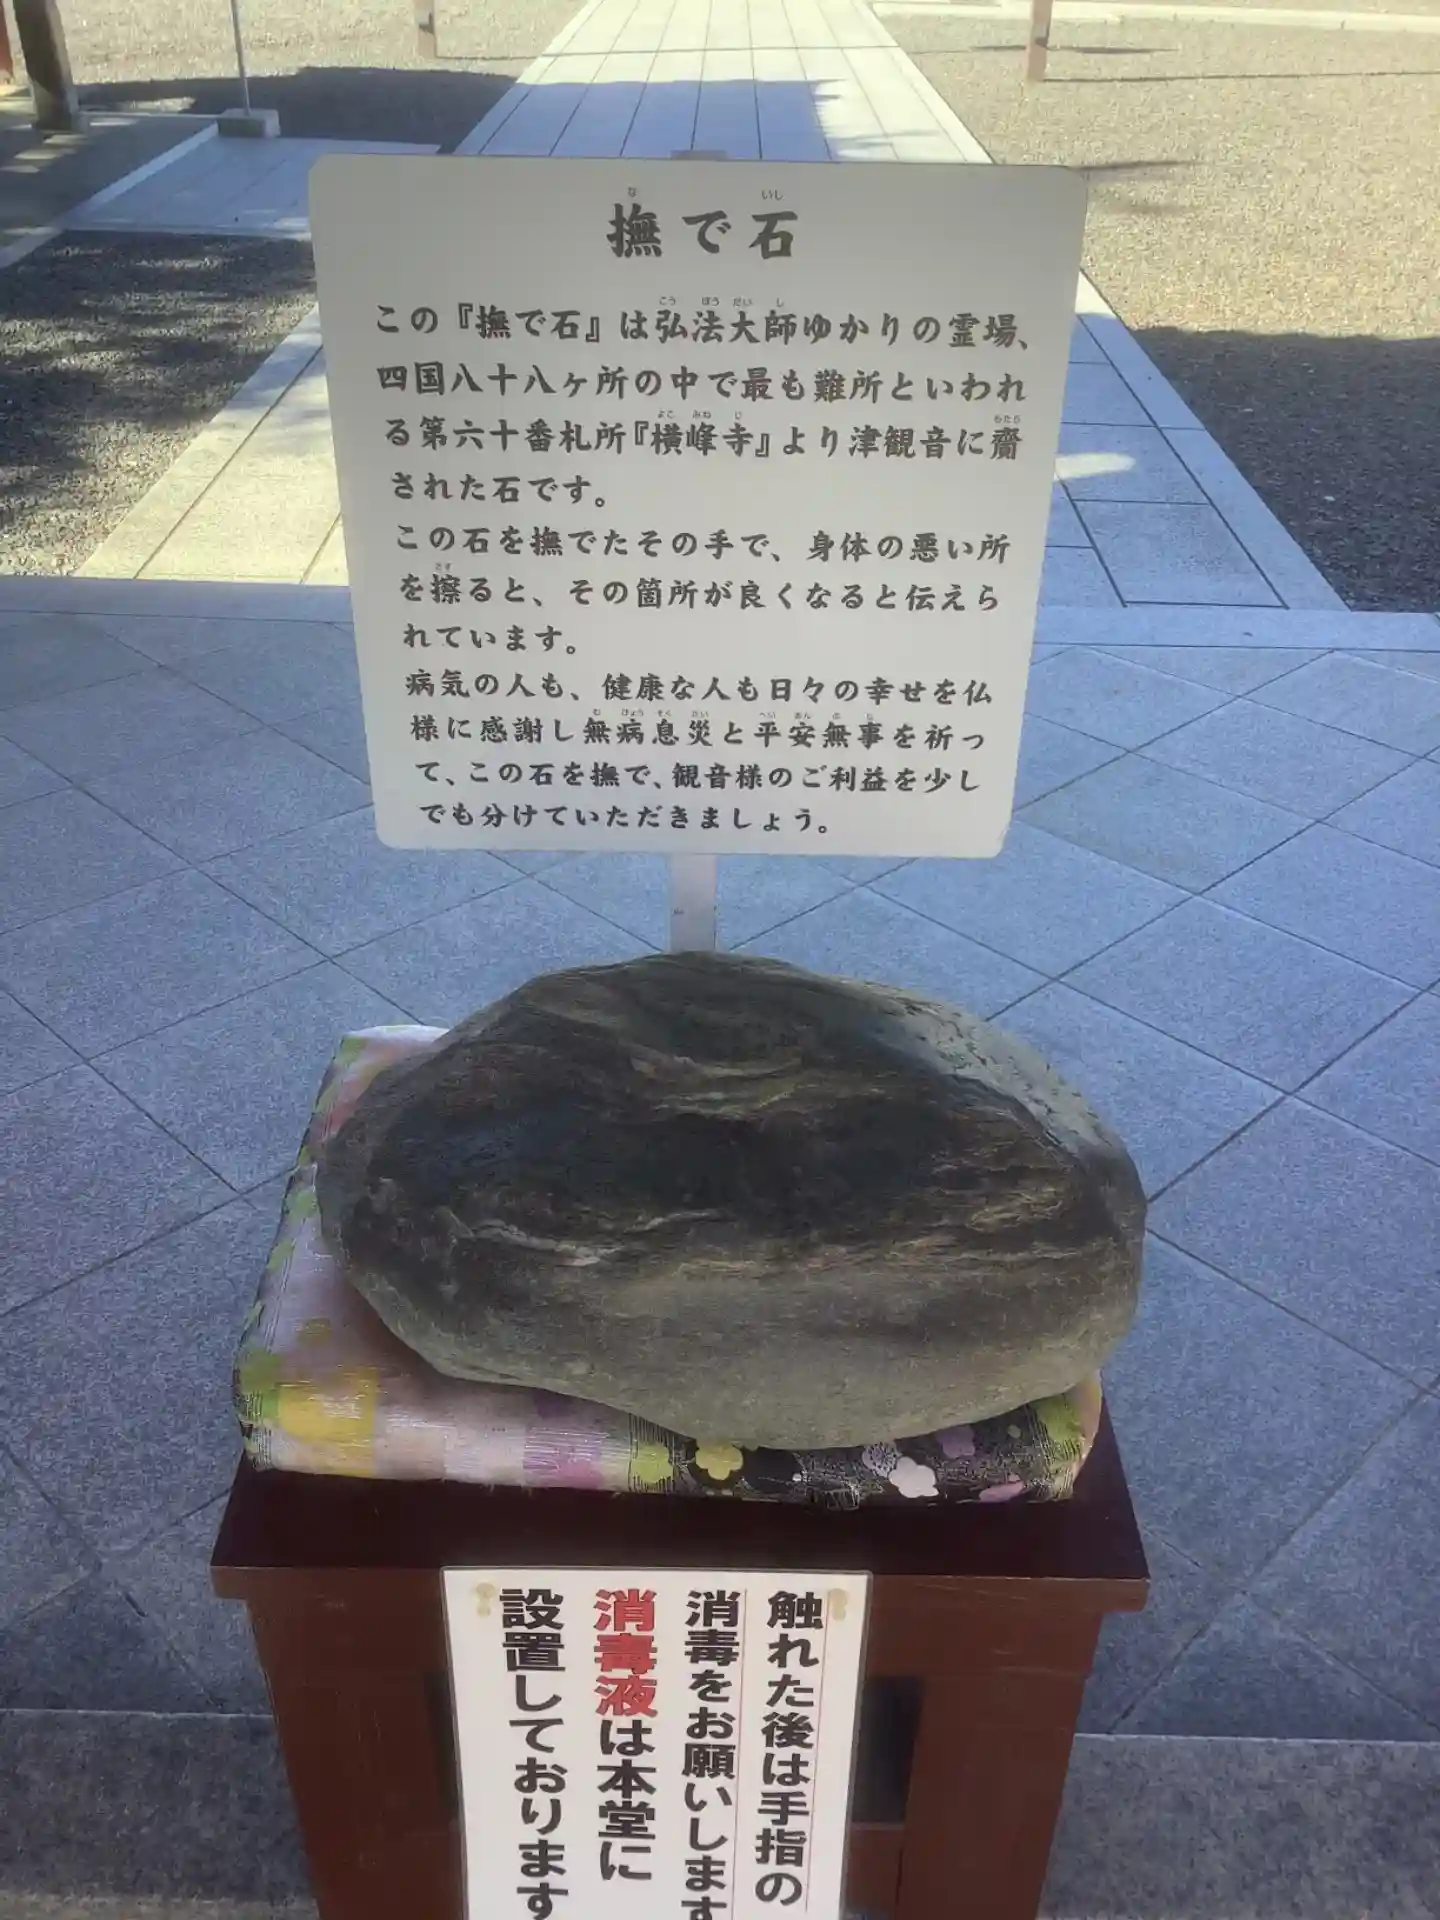 撫で石
この『撫で石』は弘法大師ゆかりの霊場、
四国八十八ヶ所の中で最も難所といわれ
る第六十番札所『横峰寺』より津観音に齎
された石です。
この石を撫でたその手で、身体の悪い所
を擦ると、その箇所が良くなると伝えら
れています。
病気の人も、健康な人も日々の幸せを仏
様に感謝し無病息災と平安無事を祈っ
て、この石を撫で、観音様のご利益を少し
でも分けていただきましょう。
触れた後は手指の
消毒をお願いします
消毒液は本堂に
設置しております